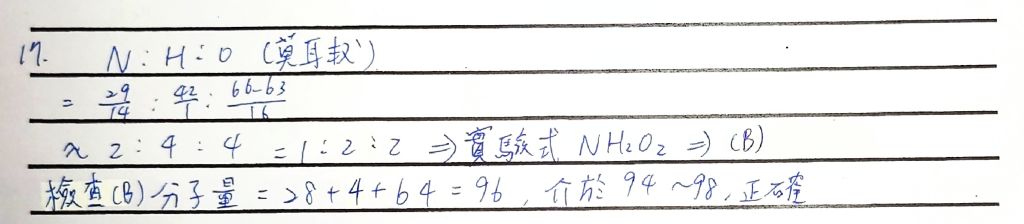 17. N : H : O (莫耳數)
= 29/14 : 42/1 : 66-63/16
≈ 2 : 4 : 4 = 1 : 2 : 2 ⇒ 實驗式 NH₂O₂ ⇒ (B)
檢查(B)分子量 = 28 + 4 + 64 = 96, 介於 94 ~ 98, 正確